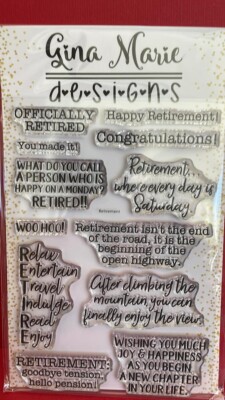 Gina Marie
designs
OFFICIALLY
RETIRED
Happy Retirement!
Congratulations!
You made it!
WHAT DO YOU CALL
A PERSON WHO IS
HAPPY ON A MONDAY?
RETIRED!!
Retirement,
where every day is
Saturday.
Retirement
WOO HOO!
Retirement isn't the end
of the road, it is the
beginning of the
open highway.
Relax
Entertain
Travel
Indulge
Read
Enjoy
After climbing the
mountain you can
finally enjoy the view.
RETIREMENT:
goodbye tension,
hello pension!
WISHING YOU MUCH
JOY & HAPPINESS
AS YOU BEGIN
A NEW CHAPTER
IN YOUR LIFE.